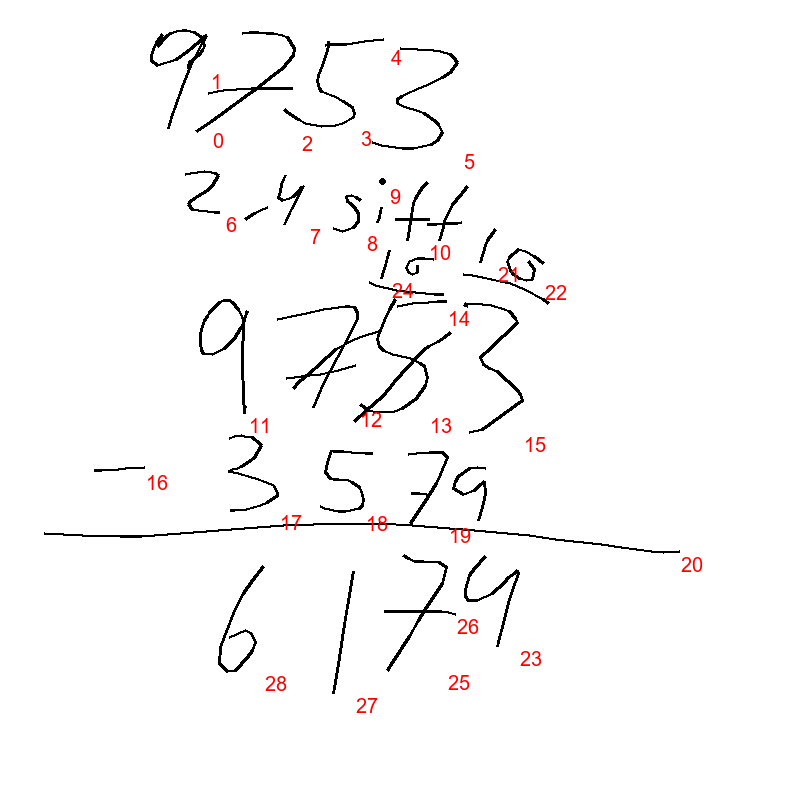 9753
4
1
0 2 3
5
2-4 sitt
9
6 7 8 10
10 10
24 21 22
9753
14
11 12 13 15
- 3579
16
17 18 19
20
6174
26
28 27 25 23